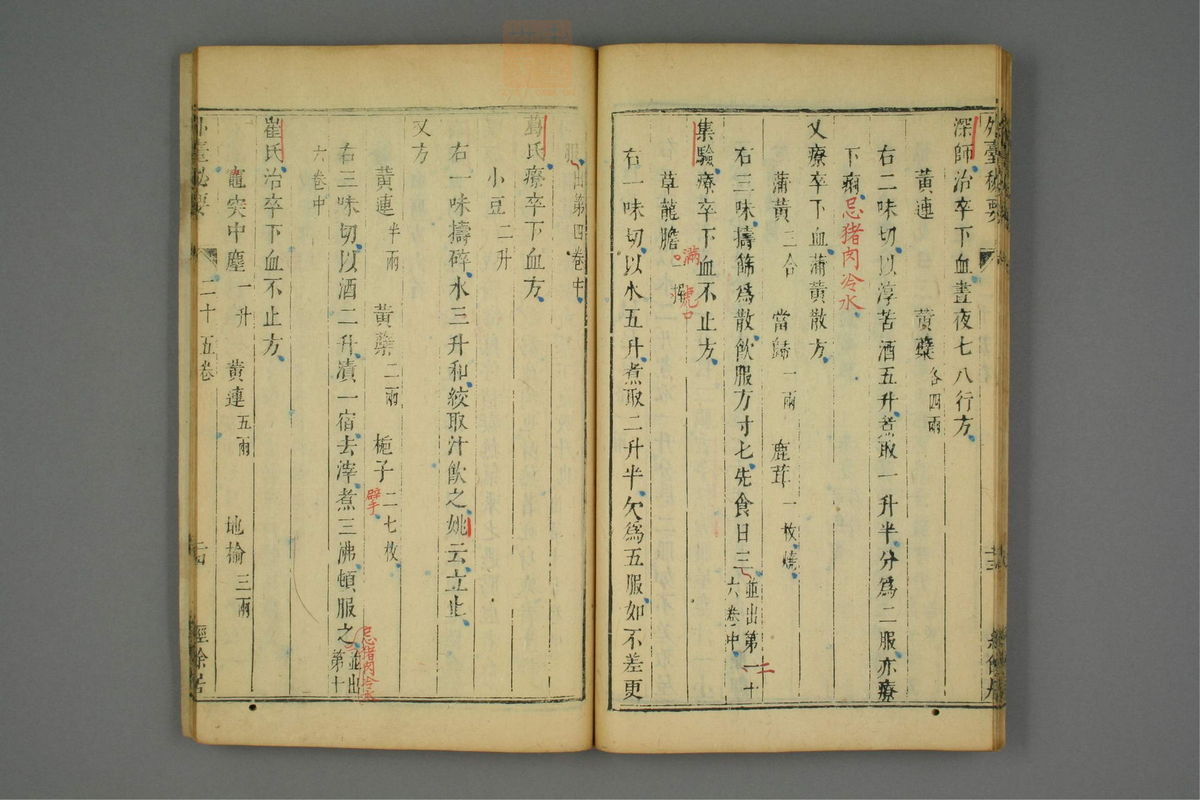 外臺秘要
深師治卒下血晝夜七八行方
黃連 黃蘗各四兩
右二味切以淳苦酒五升煮取一升半分爲二服亦療
下痢忌猪肉冷水
又療卒下血蒲黃散方
蒲黃三合 當歸一兩 鹿茸一枚燒
右三味擣篩爲散飮服方寸匕先食日三並出第二十六卷中
集驗療卒下血不止方
草龍膽一握 滿虎口
右一味切以水五升煮取二升半欠爲五服如不差更
服出第四卷中
葛氏療卒下血方
小豆二升
右一味擣碎水三升和絞取汁飮之姚云立止
又方
黃連半兩 黃蘗二兩 梔子二七枚擘
右三味切以酒二升漬一宿去滓煮三沸頓服之忌猪肉冷水並出第十
六卷中
崔氏治卒下血不止方
竈突中塵一升 黃連五兩 地榆三兩
外臺秘要 二十五卷 經餘居